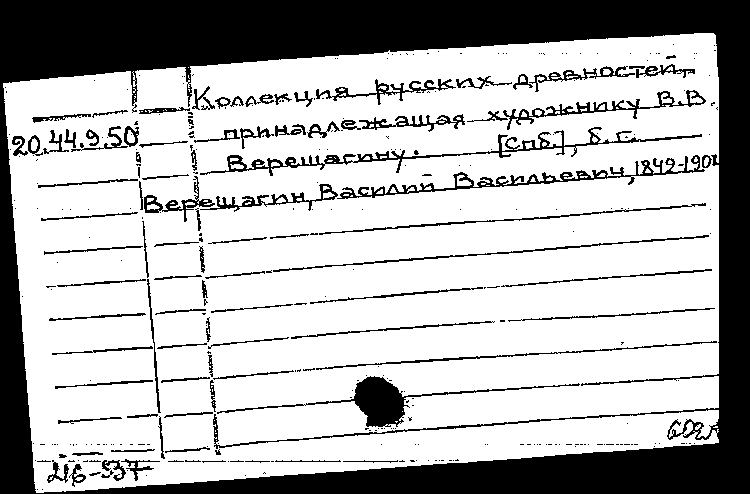 Коллекция русских древностей,
20.44.9.50 принадлежащая художнику В.В.
Верещагину. [Спб.], б. г.
Верещагин, Василий Васильевич, 1842-1904
216-537